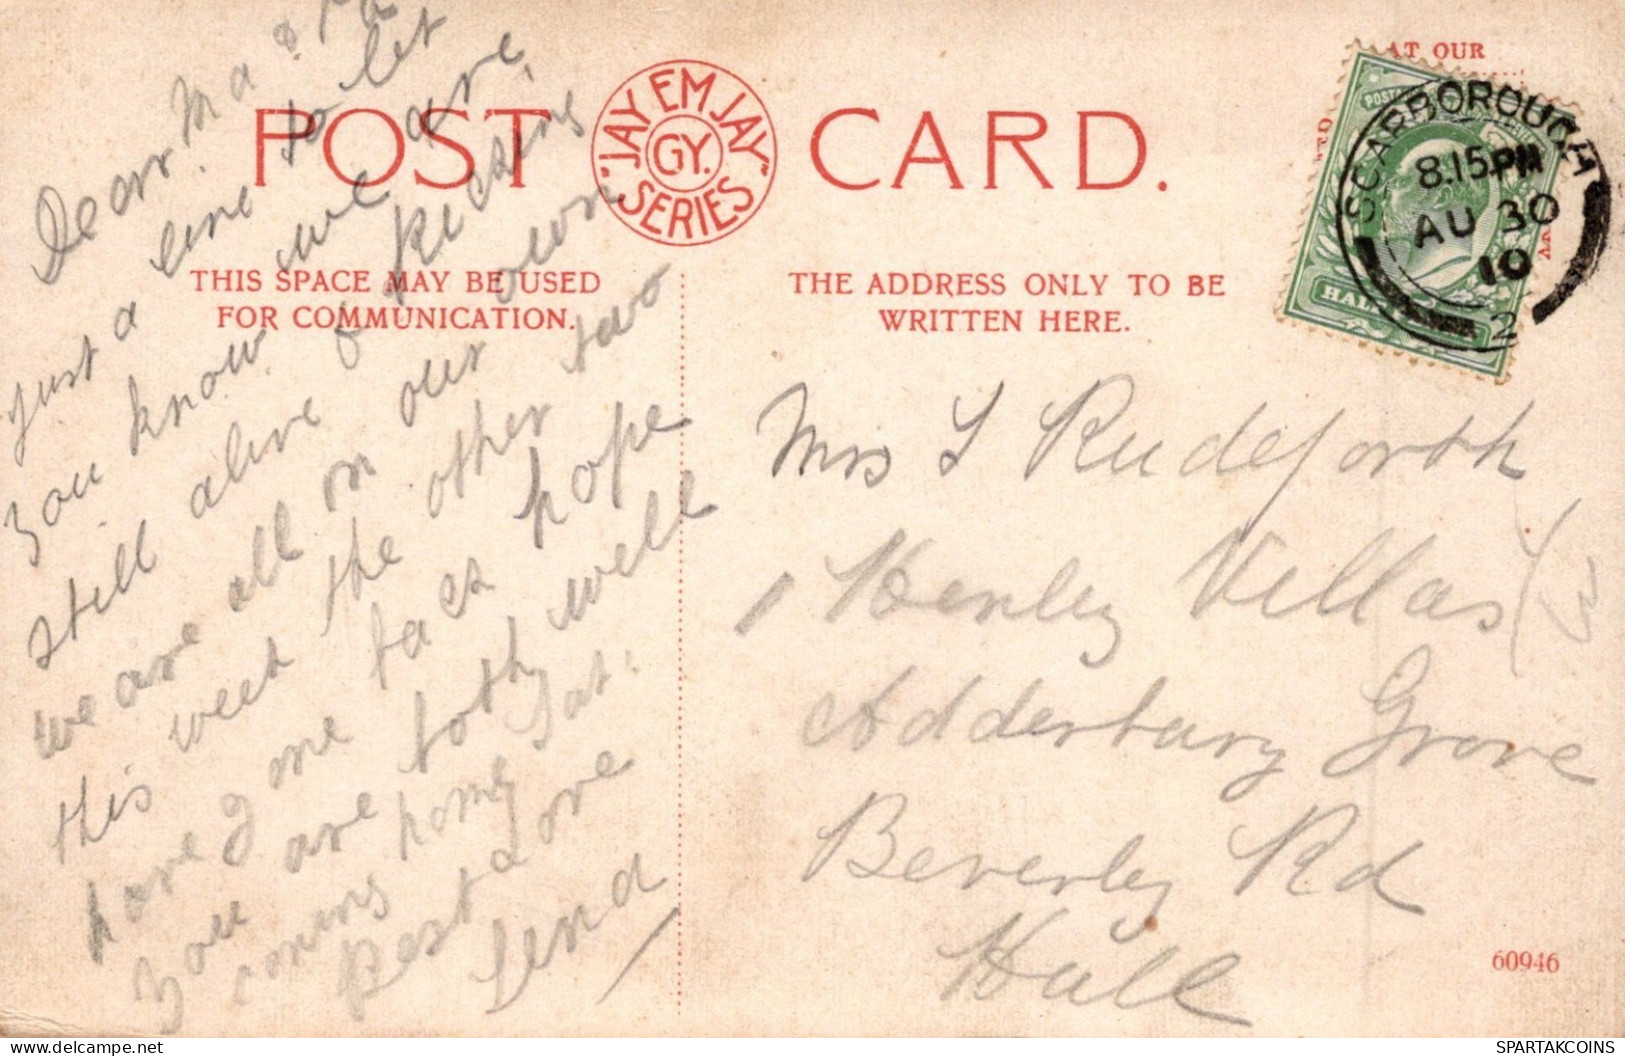 Dear Ma & Pa
just a line to let
you know we are
still alive & kicking
we are all on our own
this week the other two
have gone back hope
you are both well
coming home Sat.
Best Love
Lena
POST CARD.
"JAY EM JAY" SERIES
GY.
THIS SPACE MAY BE USED
FOR COMMUNICATION.
THE ADDRESS ONLY TO BE
WRITTEN HERE.
AT OUR
SCARBOROUGH
8.15PM
AU 30
10
2
Mrs Rudeforth
1 Henley Villas
Adderbury Grove
Beverley Rd
Hull
60946
www.delcampe.net
SPARTAKCOINS
SPARTAKCOINS.COM